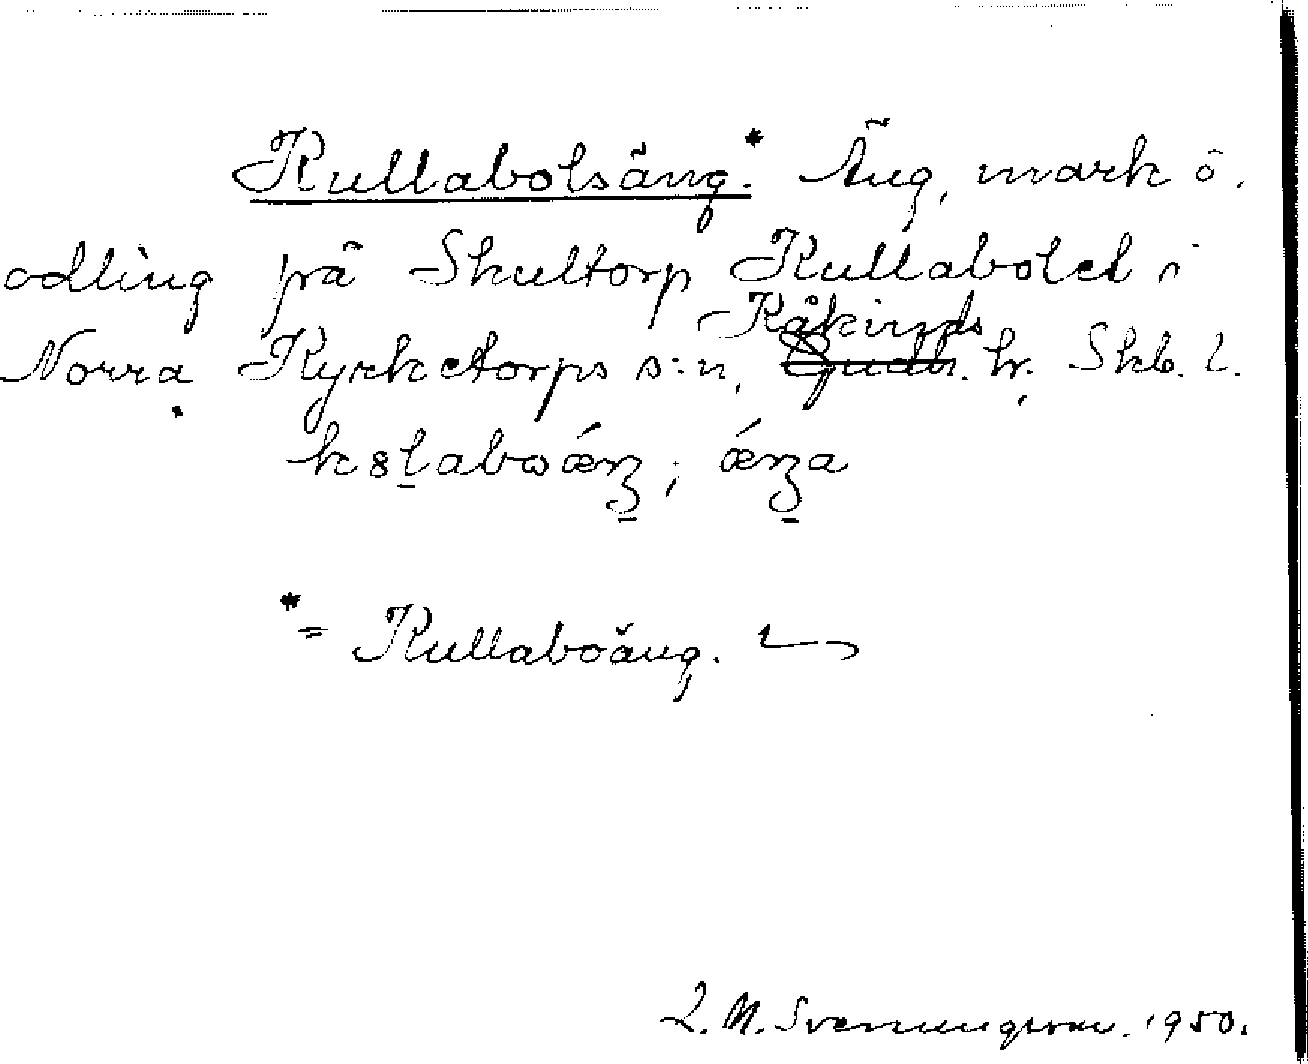 Kullabolsäng.* Äng, mark o.
odling på Skultorp Kullabolet i
Norra Kyrketorps s:n, Kåkinds hr. Skb. l.
kslaboäng ; änga
*= Kullaboäng.
L. M. Svenungsson. 1950.